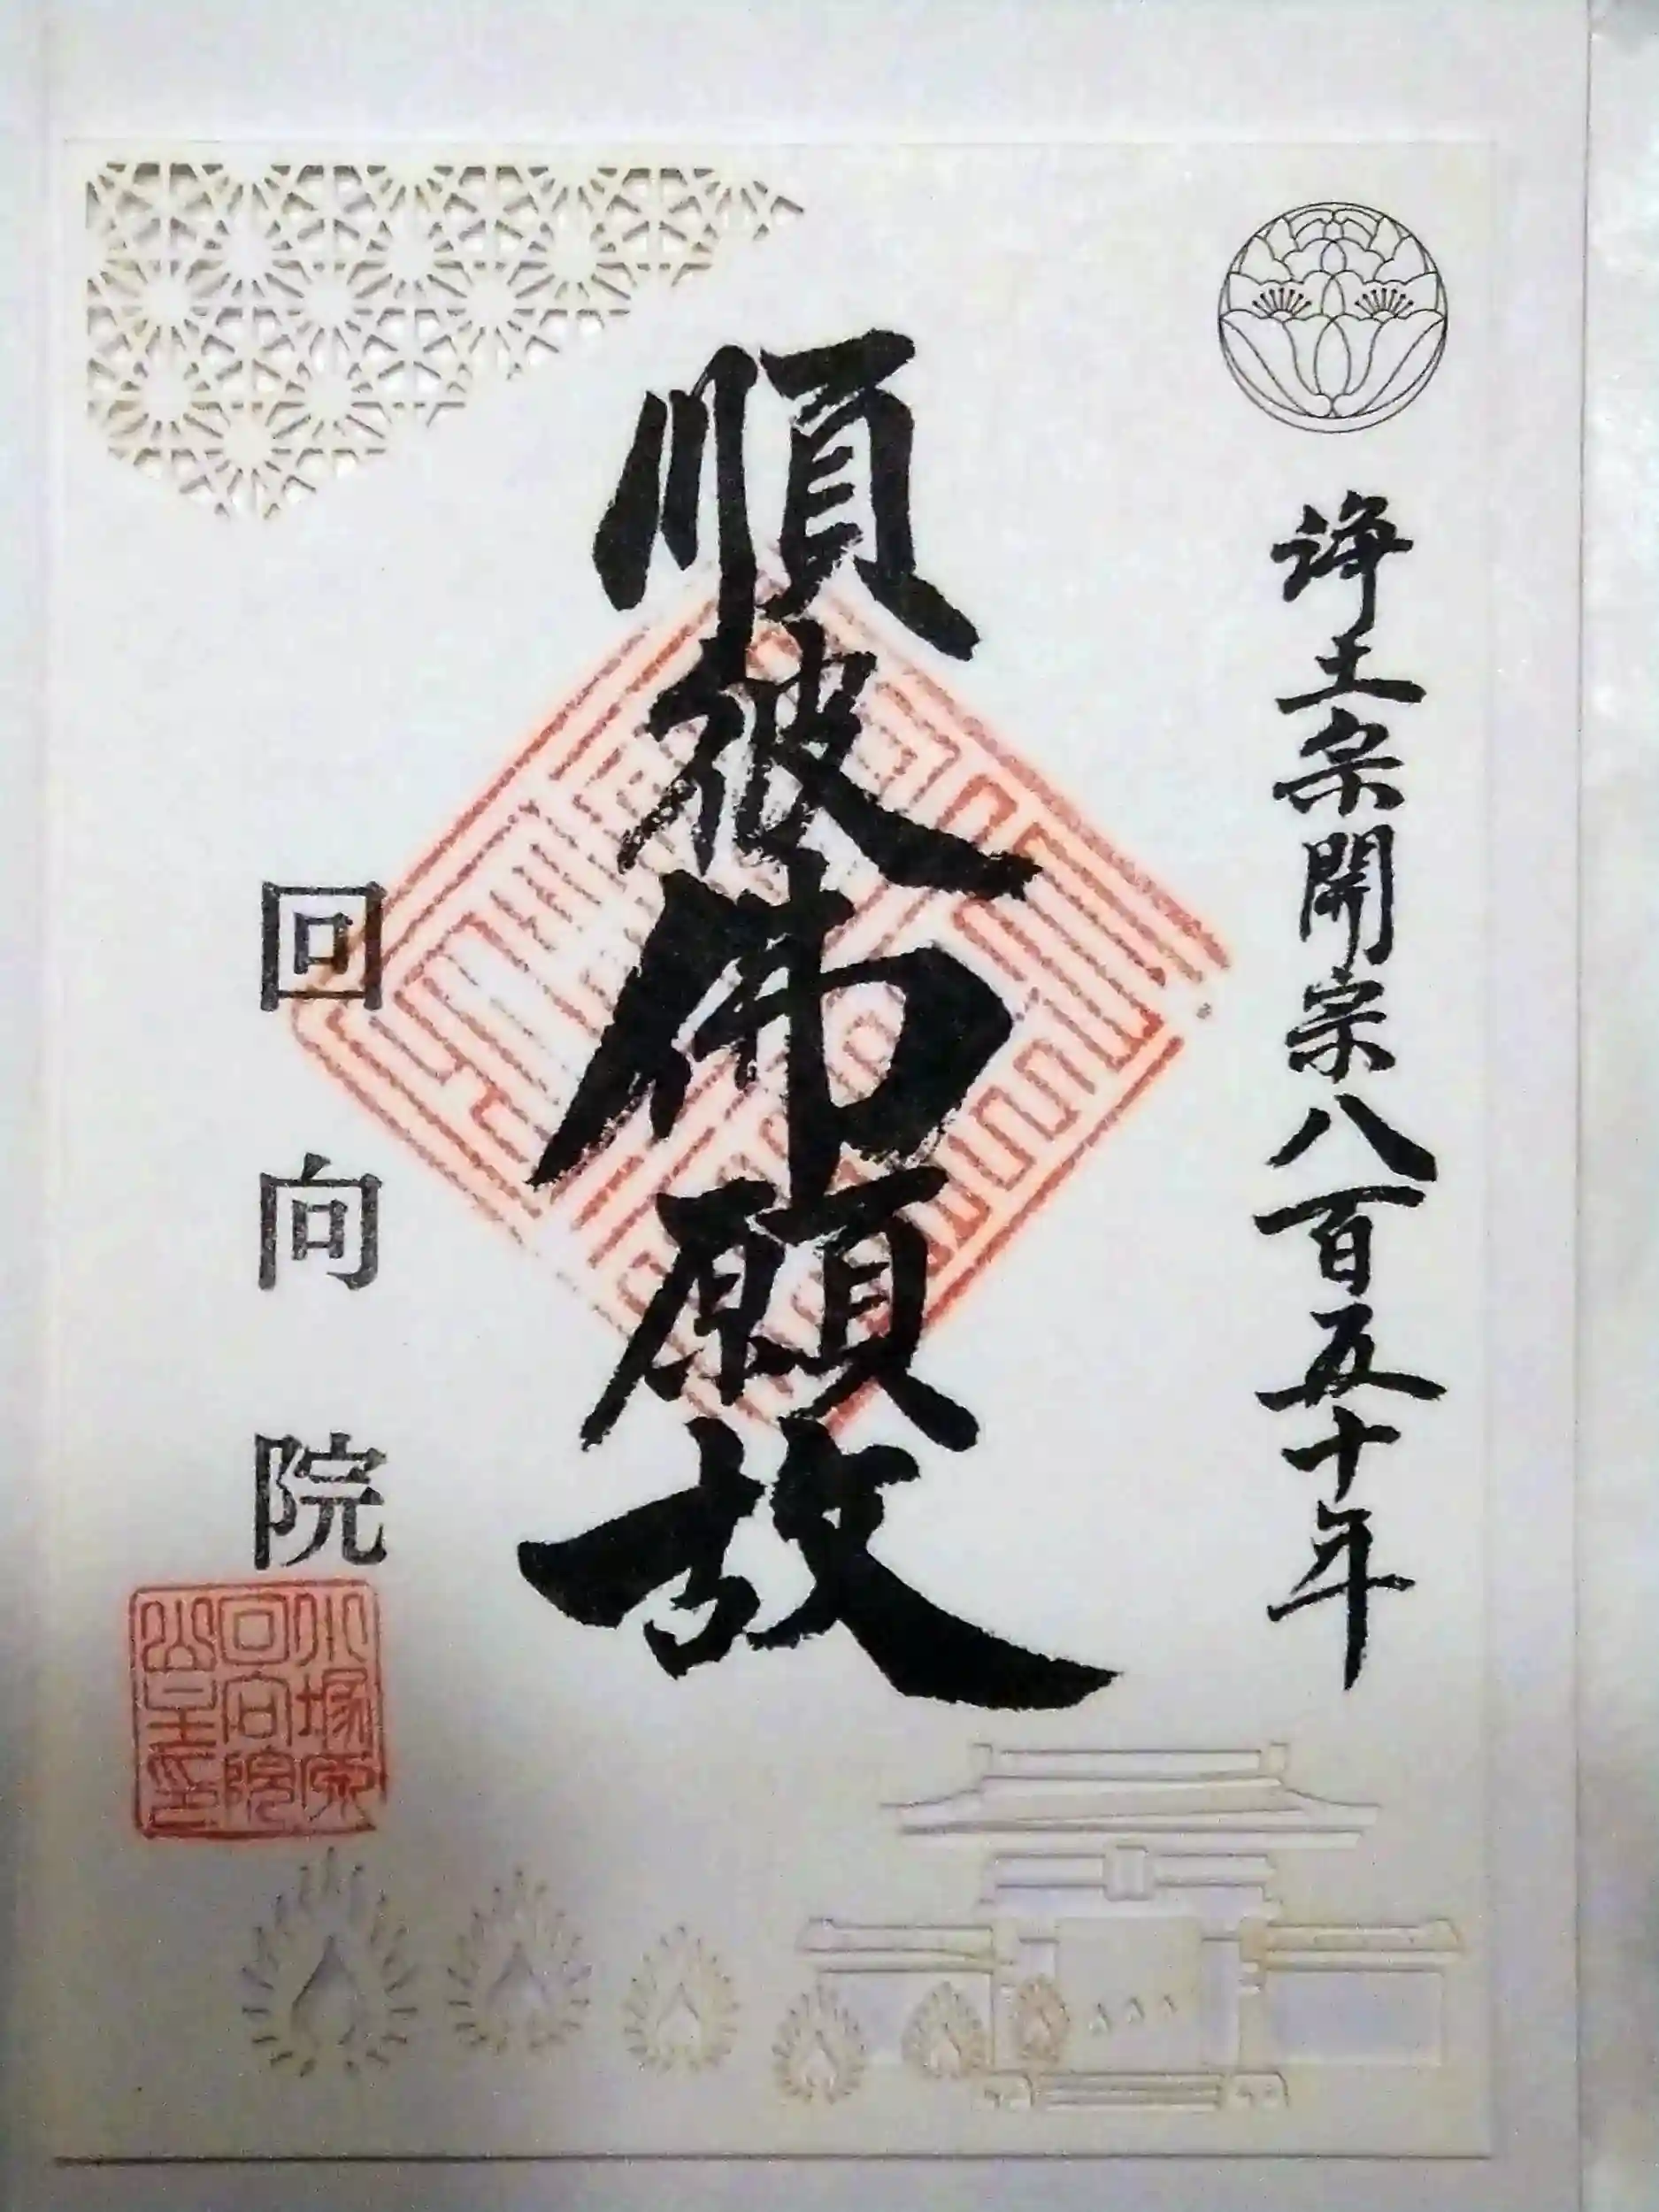 浄土宗開宗八百五十年
順彼佛願故
回向院
小塚原
回向院